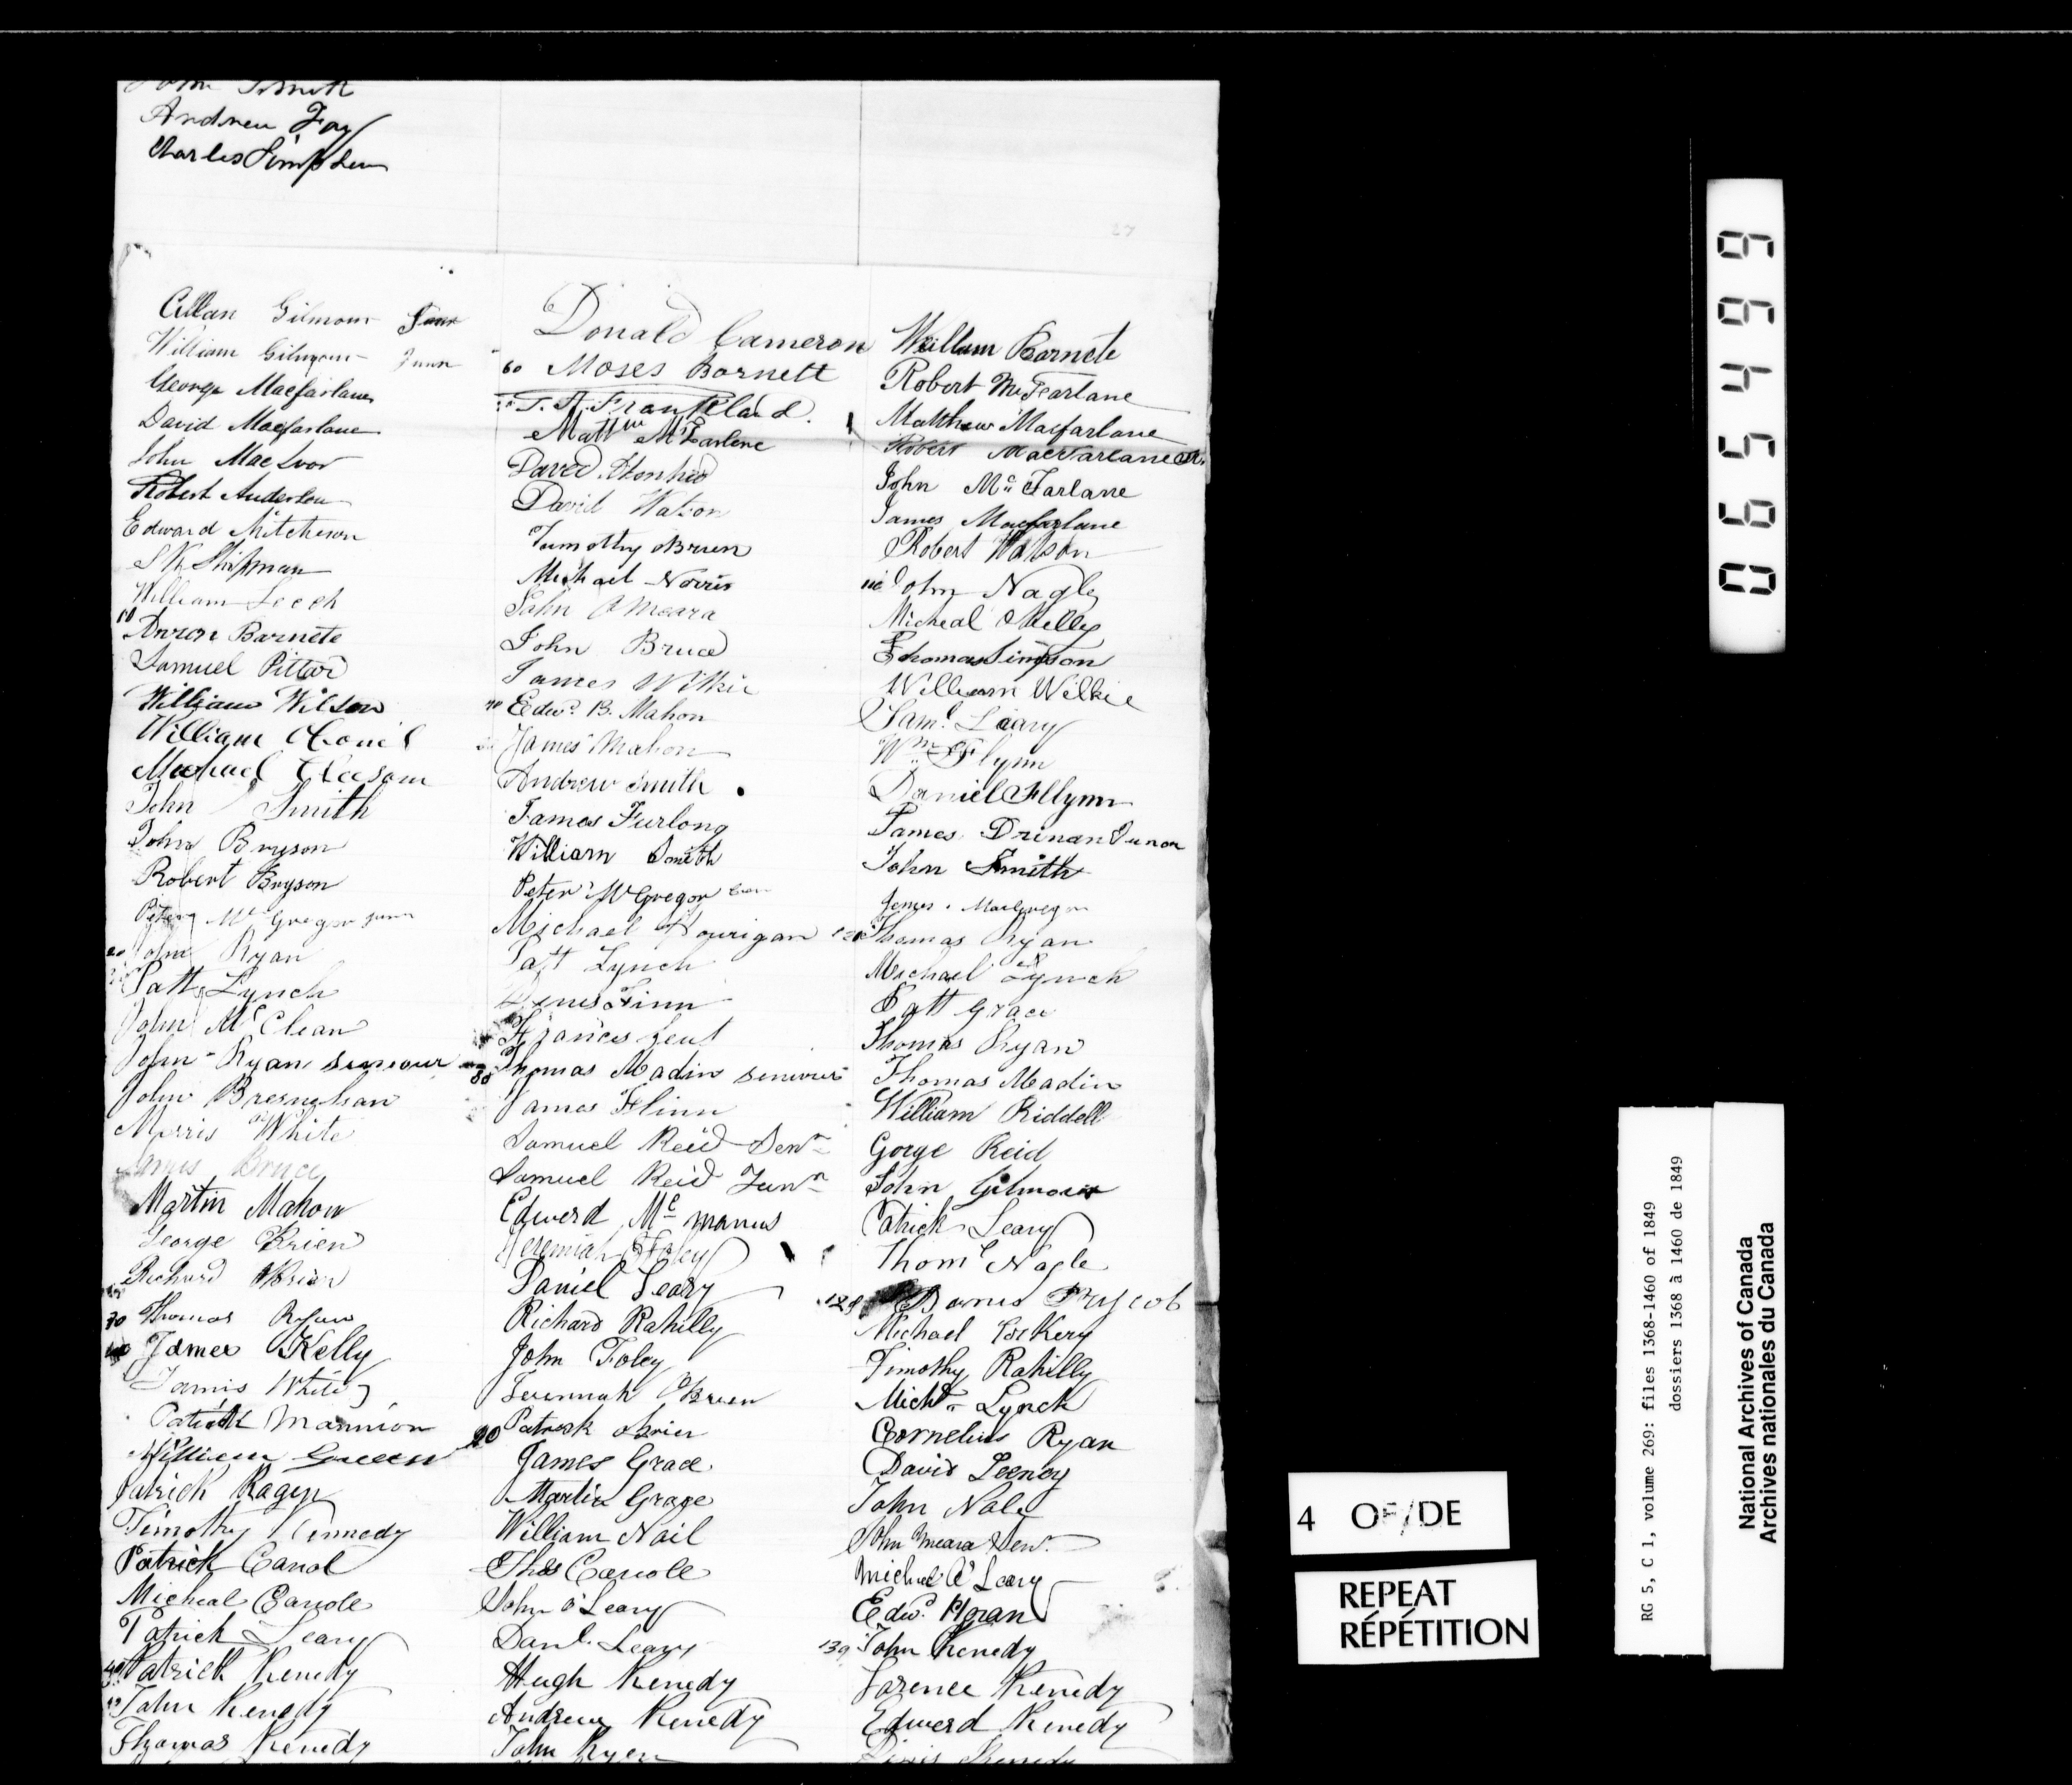 John Smith
Andrew Foy
Charles Simpson
27
Allan Gilmour Junr
William Gilmour Junr
George Macfarlane
David Macfarlane
John MacIvor
Robert Anderson
Edward Mitcheson
S K Shipman
William Leech
10
Anron Barnete
Samuel Pittar
William Wilson
William
Michael Gleeson
John Smith
John Bryson
Robert Bryson
Peter McGregor junr
20 John Ryan
Patt Lynch
John McClean
John Ryan seneour
John Bresnehan
Morris White
James Bruce
Martin Mahon
George Brien
Richard OBrian
30 Thomas Ryan
James Kelly
Jamis White
Patrick Mannion
William Green
Patrick Ragen
Timothy Kennedy
Patrick Carrol
Micheal Carrole
Patrick Leary
40 Patrick Kenedy
John Kenedy
Thomas Kenedy
Donald Cameron
60 Moses Barnett
T. A. Frankland.
Mattw McFarlene
David
David Watson
Tumothy OBrien
Michael Norris
John OMeara
John Bruce
James Wilkie
70 Edwd. B. Mahon
James Mahon
Andrew Smith
James Furlong
William Smith
Peter McGregor sen
Michael Hourigan
Patt Lynch
Denis Finn
Frances Kent
80 Thomas Madin seniour
James Flinn
Samuel Reid Senr
Samuel Reid Junr
Edwerd Mc manus
Jeremiah Foley
Daniel Leary
Richard Rahilly
John Foley
Jerimmah OBrien
90 Patrick obrien
James Grace
Martin Grace
William Nail
Thos Carrole
John O'Leary
Danl. Leary
Hugh Kenedy
Andrew Kenedy
John Ryen
William Barnete
Robert McFarlane
Matthew Macfarlane
Robert Macfarlane Sr.
John Mc Farlane
James Macfarlane
Robert Watson
110 John Nagle
Micheal Kelly
Thomas Simpson
William Wilkie
Saml Leary
Wm Flynn
Daniel Fllynn
James Drinan Junor
John Smith
James MacGregor
120 Thomas Ryan
Michael Lynch
Patt Grace
Thomas Ryan
Thomas Madin
William Riddell
Gorge Reid
John Gilmour
Patrick Leary
Thoms Nagle
129
Michael
Timothy Rahilly
Michl Lynch
Cornelius Ryan
David Feeney
John Nale
John Meara Senr.
Michael O'Leary
Edwd. Horan
139 John Kenedy
Larence Kenedy
Edwerd Kenedy
Kenedy
065499
RG 5, C 1, volume 269: files 1368-1460 of 1849
dossiers 1368 à 1460 de 1849
National Archives of Canada
Archives nationales du Canada
4 OF/DE
REPEAT
RÉPÉTITION